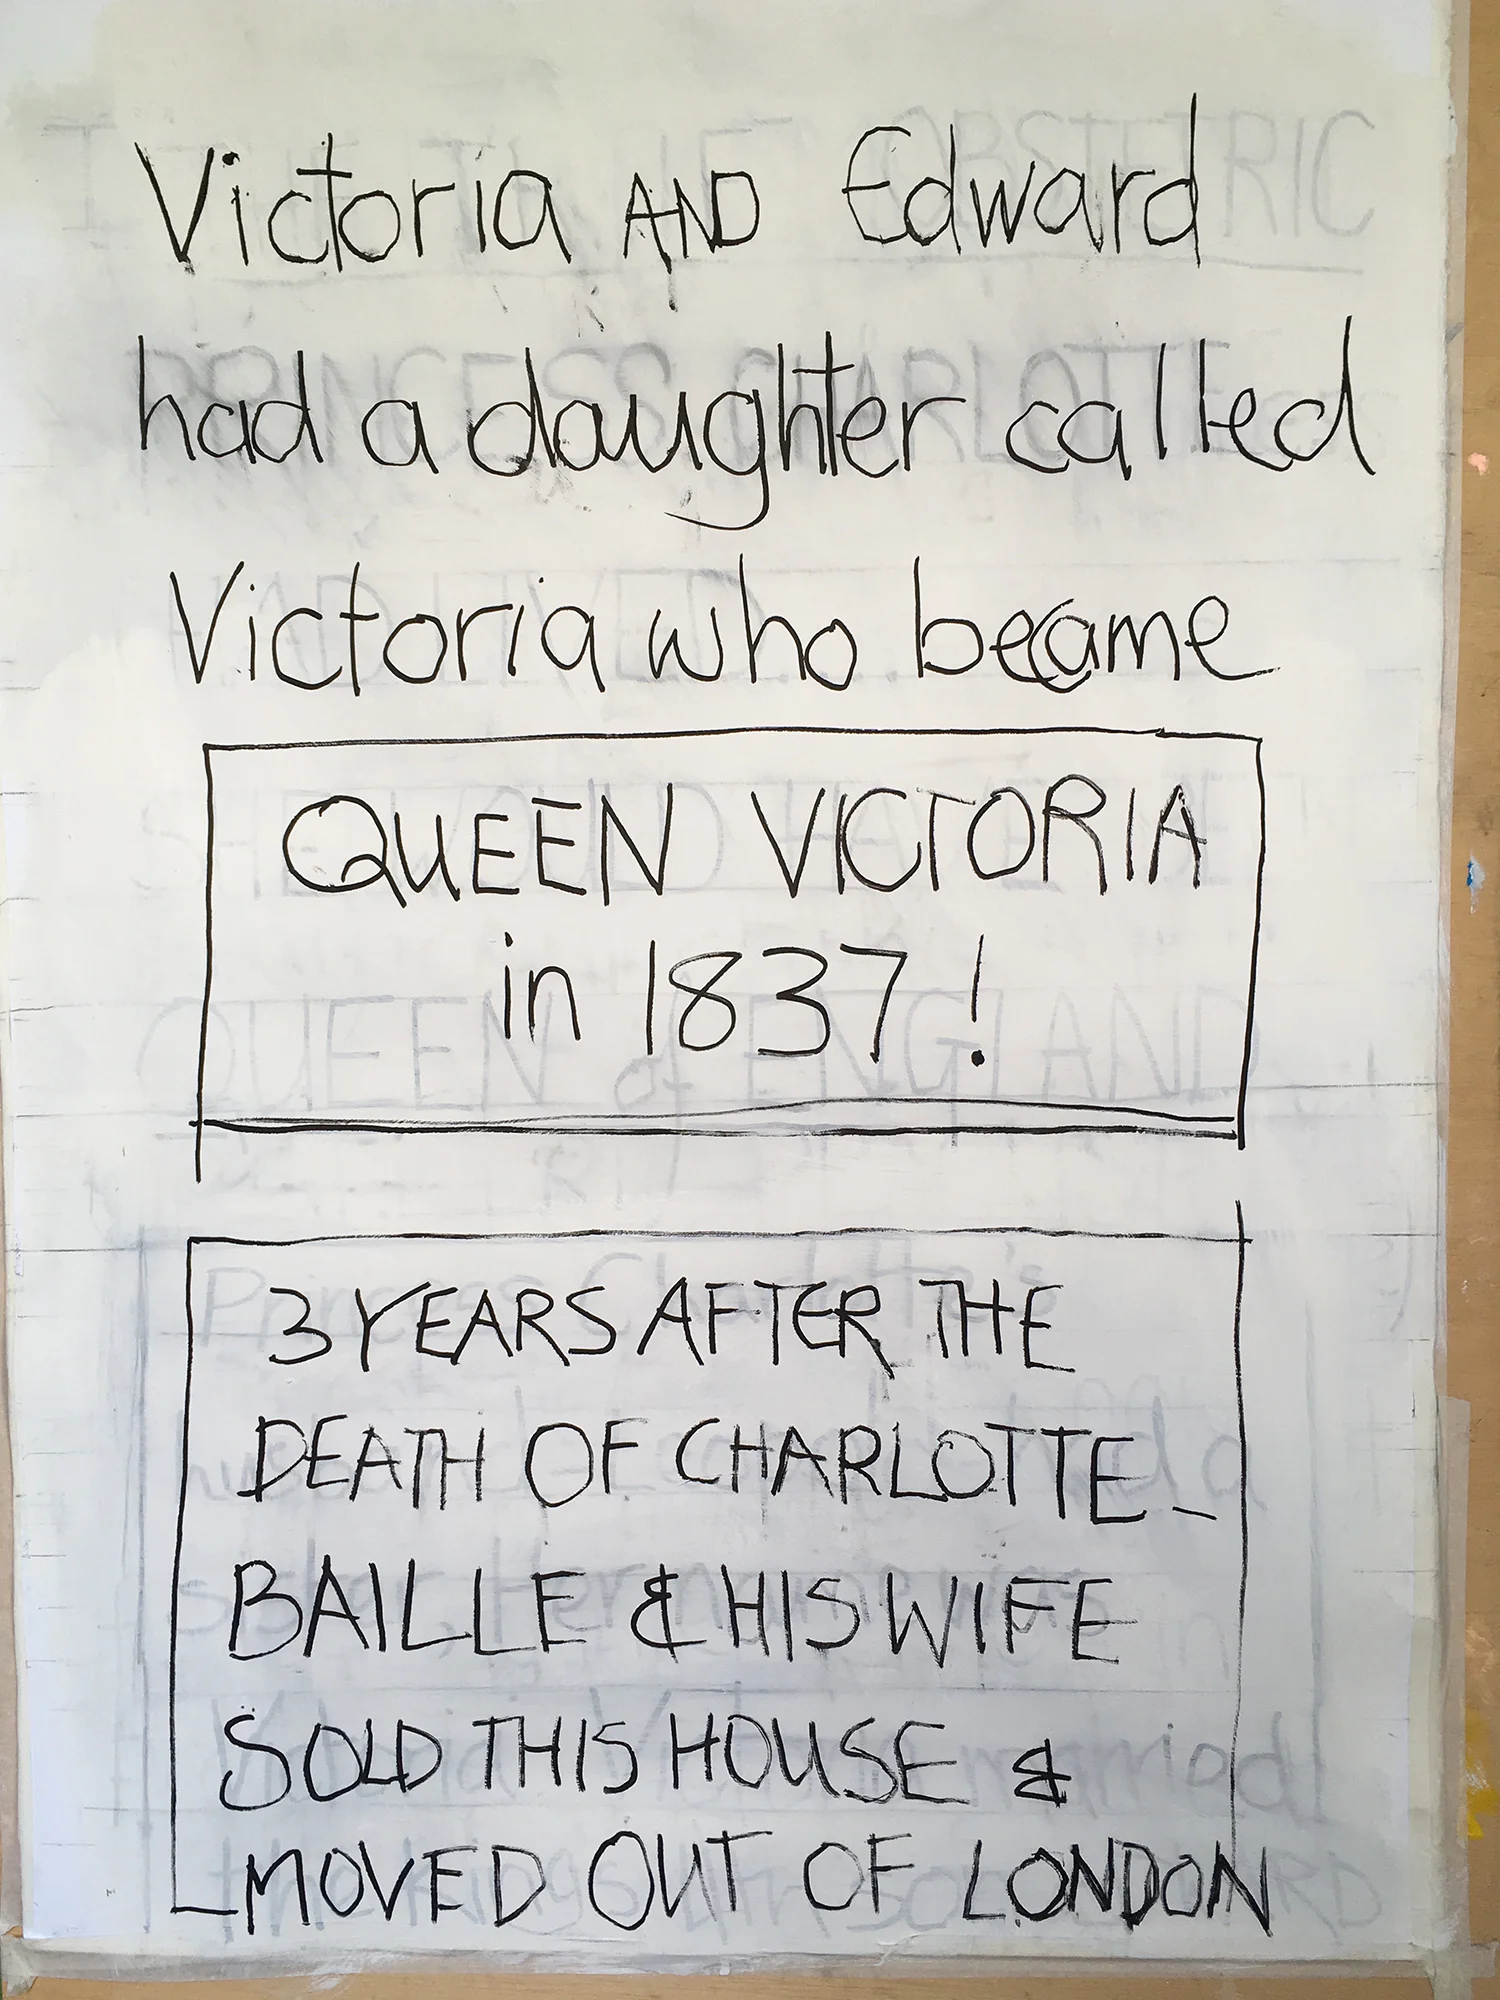 Victoria AND Edward
had a daughter called
Victoria who became
QUEEN VICTORIA
in 1837!
3 YEARS AFTER THE
DEATH OF CHARLOTTE -
BAILLE & HIS WIFE
SOLD THIS HOUSE &
MOVED OUT OF LONDON